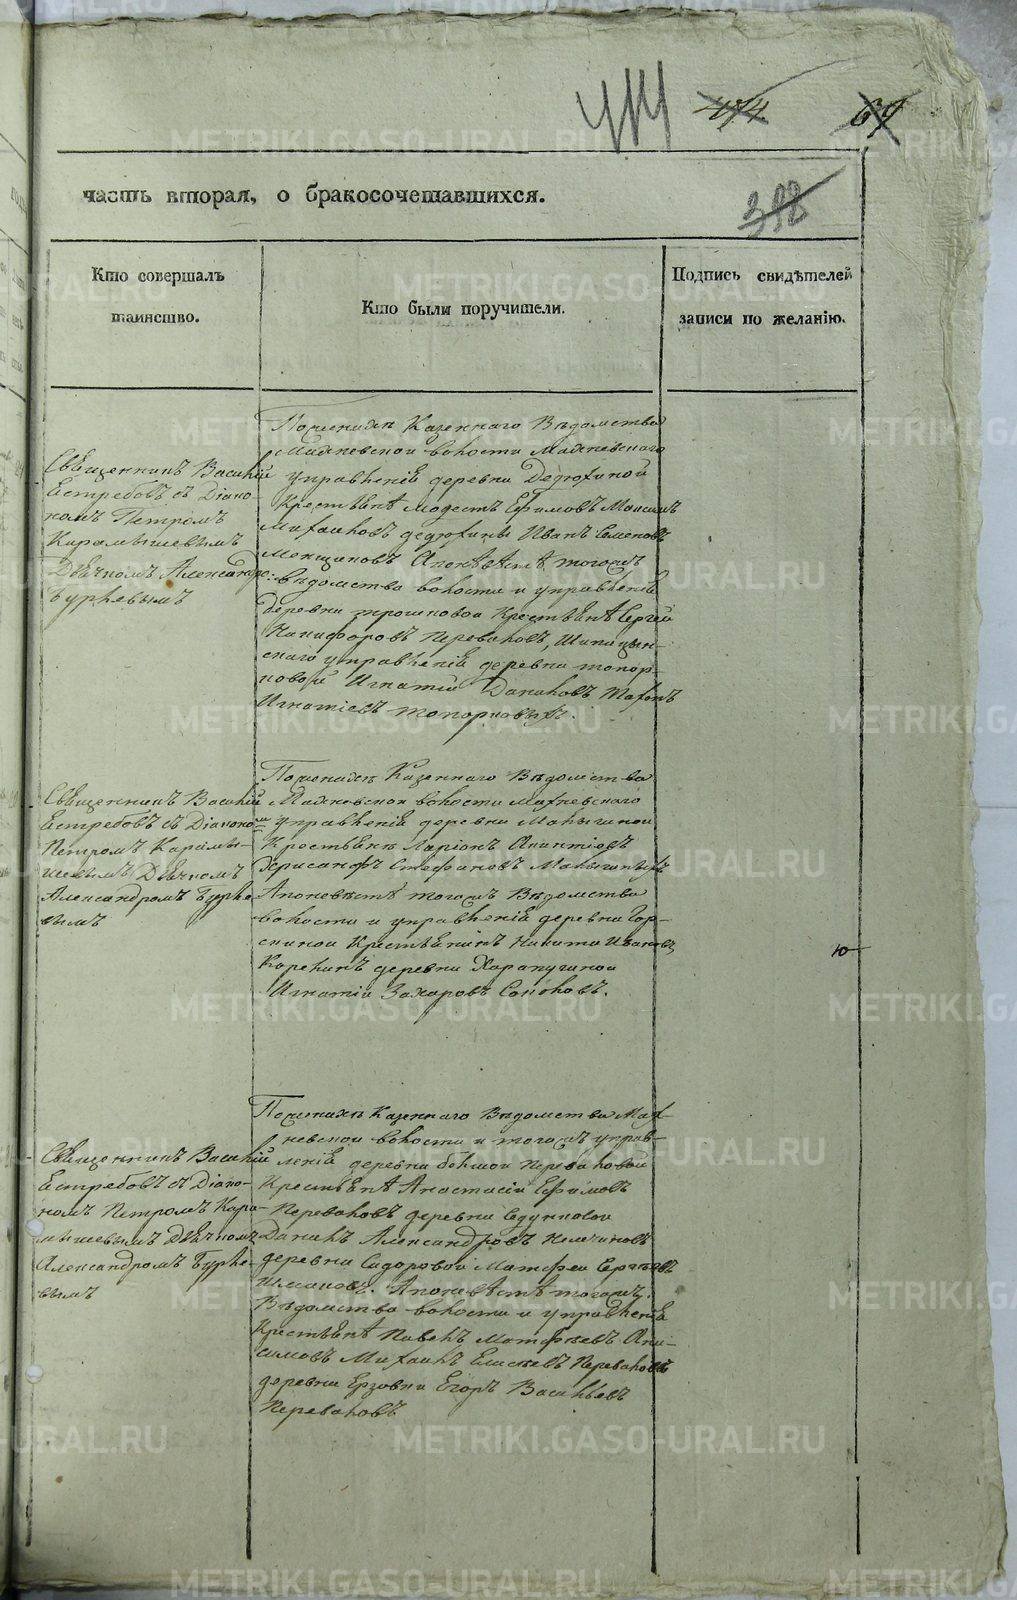 474
67
часть вторая, о бракосочетавшихся.
398
Кто совершалъ
таинство.
Кто были поручители.
Подпись свидѣтелей
записи по желанію.
Священникъ Василій
Ястребовъ съ Діако-
номъ Петромъ
Карамышевымъ
Дьячкомъ Александро:
Бурлевымъ
Пожениху Казеннаго Вѣдомства
Махневской волости Махневскаго
управленія деревни Дедюхиной
Крестьянѣ Модестъ Ефимовъ Максимъ
Михаиловъ дедюхины Иванъ Семеновъ
Апоневѣстѣ тогожъ
вѣдомства волости и управленія
деревни трошковой Крестьянѣ Сергей
Никифоровъ Переваловъ, Шипицын-
скаго управленія деревни топор-
ковой Игнатій Даниловъ
Игнатіевъ топорковыхъ.
Священникъ Василій
Ястребовъ съ Діаконо
Петромъ Карамы-
шевымъ Дьячкомъ
Александромъ Бурле-
вымъ
Пожениху Казеннаго Вѣдомства
Махневской волости Махневскаго
управленія деревни Малыгиной
Крестьяне Ларіонъ
Хрисанфъ Стефановъ Малыгиныхъ
Апоневѣстѣ тогожъ Вѣдомства
волости и управленія деревни Гор-
скиной Крестьянинъ Никита Ивановъ
Карелинъ деревни
Игнатіи Захаровъ Соколовъ.
ю
Священникъ Василій
Ястребовъ съ Діако-
номъ Петромъ Кара-
мышевымъ Дьячкомъ
Александромъ Бурле-
вымъ
Пожениху Казеннаго Вѣдомства Мах-
невской волости и тогожъ управ-
ленія деревни болшой Переваловой
Крестьянѣ Анастасіи Ефимовъ
Переваловъ деревни
Данилъ Александровъ
деревни Сидоровой Матфей Сергѣевъ
Апоневѣстѣ тогожъ
Вѣдомства волости и управленія
Крестьянѣ Павелъ Матфѣевъ Ани-
симовъ Михаилъ Елисѣевъ Переваловъ
деревни Ерзовки Егоръ Васильевъ
Переваловъ
METRIKI.GASO-URAL.RU